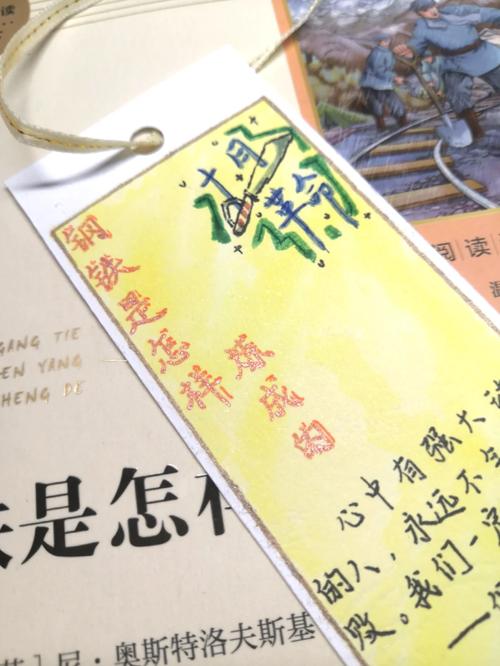 读
十月
革命
钢铁是怎样
炼成的
心中有强大
的人，永远不
我们一定
GANG TIE
EN YANG
HENG DE
是怎
尼·奥斯特洛夫斯基
阅读